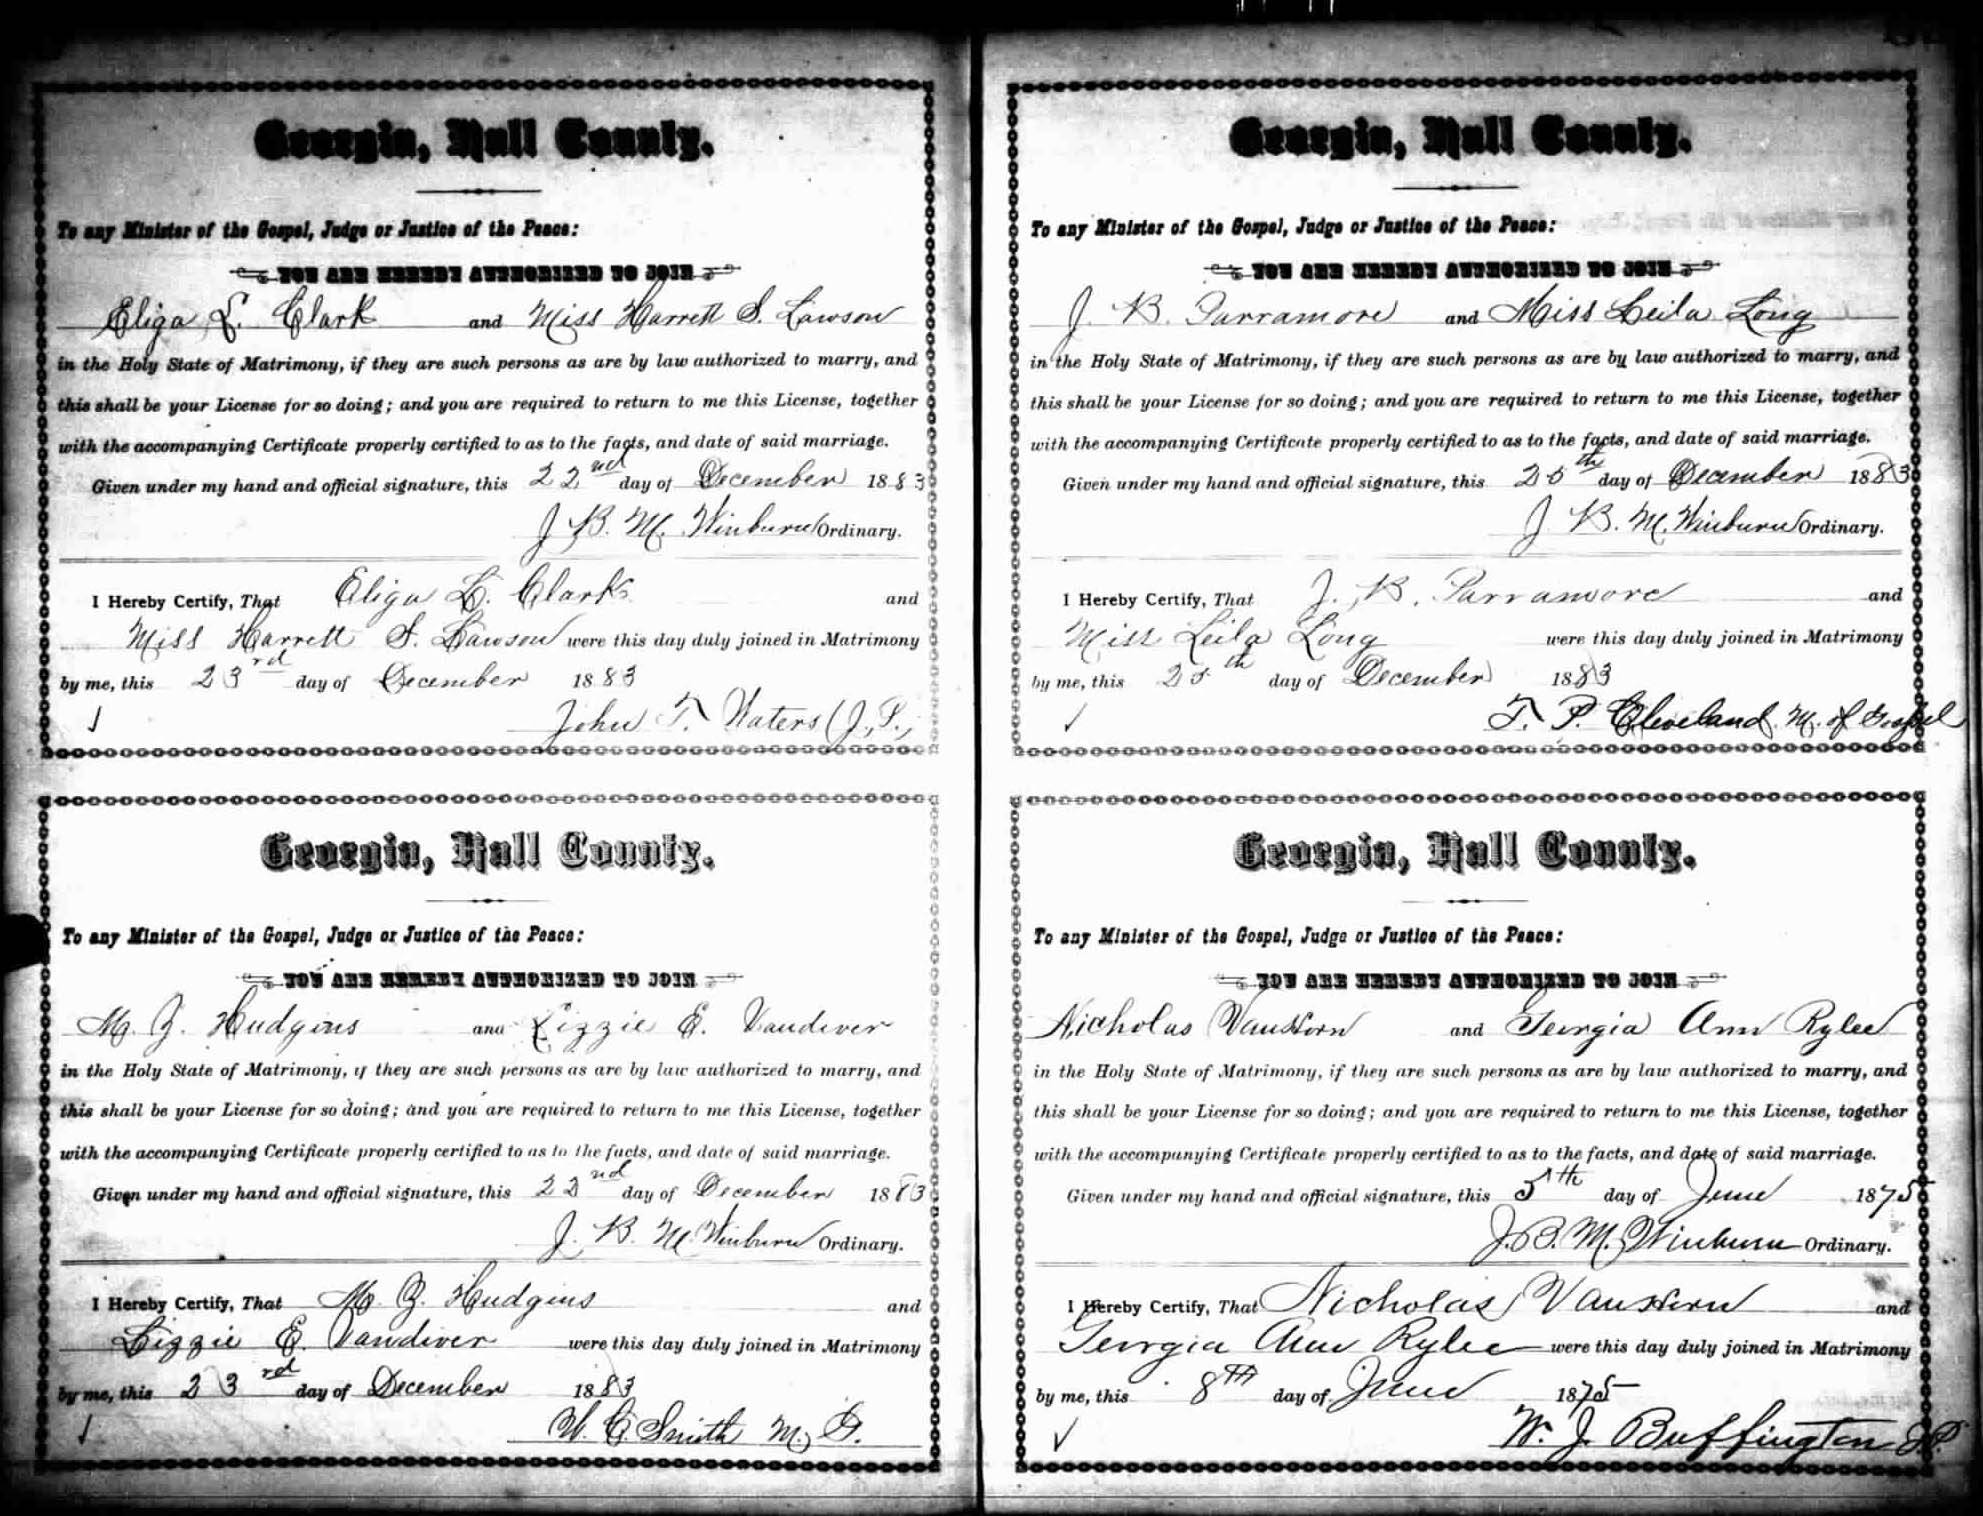 Georgia, Hall County.
To any Minister of the Gospel, Judge or Justice of the Peace:
YOU ARE HEREBY AUTHORIZED TO JOIN
Eliga L. Clark and Miss Harrett S. Lawson
in the Holy State of Matrimony, if they are such persons as are by law authorized to marry, and
this shall be your License for so doing; and you are required to return to me this License, together
with the accompanying Certificate properly certified to as to the facts, and date of said marriage.
Given under my hand and official signature, this 22nd day of December 1883
J. B. M. Winburn Ordinary.
I Hereby Certify, That Eliga L. Clark and
Miss Harrett S. Lawson were this day duly joined in Matrimony
by me, this 23rd day of December 1883
John T. Waters (J. P.,
Georgia, Hall County.
To any Minister of the Gospel, Judge or Justice of the Peace:
YOU ARE HEREBY AUTHORIZED TO JOIN
M. Z. Hudgins and Lizzie E. Vandiver
in the Holy State of Matrimony, if they are such persons as are by law authorized to marry, and
this shall be your License for so doing; and you are required to return to me this License, together
with the accompanying Certificate properly certified to as to the facts, and date of said marriage.
Given under my hand and official signature, this 22nd day of December 1883
J. B. M. Winburn Ordinary.
I Hereby Certify, That M. Z. Hudgins and
Lizzie E. Vandiver were this day duly joined in Matrimony
by me, this 23rd day of December 1883
W. C. Smith M. G.
Georgia, Hall County.
To any Minister of the Gospel, Judge or Justice of the Peace:
YOU ARE HEREBY AUTHORIZED TO JOIN
J. B. Parramore and Miss Leila Long
in the Holy State of Matrimony, if they are such persons as are by law authorized to marry, and
this shall be your License for so doing; and you are required to return to me this License, together
with the accompanying Certificate properly certified to as to the facts, and date of said marriage.
Given under my hand and official signature, this 25th day of December 1883
J. B. M. Winburn Ordinary.
I Hereby Certify, That J. B. Parramore and
Miss Leila Long were this day duly joined in Matrimony
by me, this 25th day of December 1883
T. P. Cleveland M. of Gospel
Georgia, Hall County.
To any Minister of the Gospel, Judge or Justice of the Peace:
YOU ARE HEREBY AUTHORIZED TO JOIN
Nicholas VanHorn and Georgia Ann Rylee
in the Holy State of Matrimony, if they are such persons as are by law authorized to marry, and
this shall be your License for so doing; and you are required to return to me this License, together
with the accompanying Certificate properly certified to as to the facts, and date of said marriage.
Given under my hand and official signature, this 5th day of June 1875
J. B. M. Winburn Ordinary.
I Hereby Certify, That Nicholas VanHorn and
Georgia Ann Rylee were this day duly joined in Matrimony
by me, this 8TH day of June 1875
W. J. Buffington J.P.